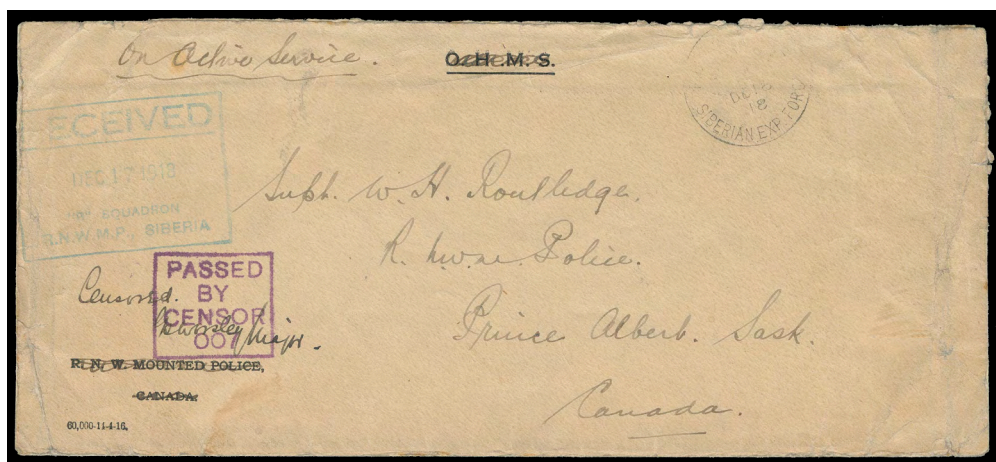 On Active Service.
O.H.M.S.
DE 18
18
SIBERIAN EXP. FOR
ECEIVED
DEC 17 1918
"B" SQUADRON
R.N.W.M.P., SIBERIA
Supt. W. H. Routledge.
R. N.W.M. Police.
Prince Albert. Sask.
Canada.
PASSED
BY
CENSOR
001
Censored.
Worsley Major.
R. N. W. MOUNTED POLICE,
CANADA.
60,000-14-4-16.